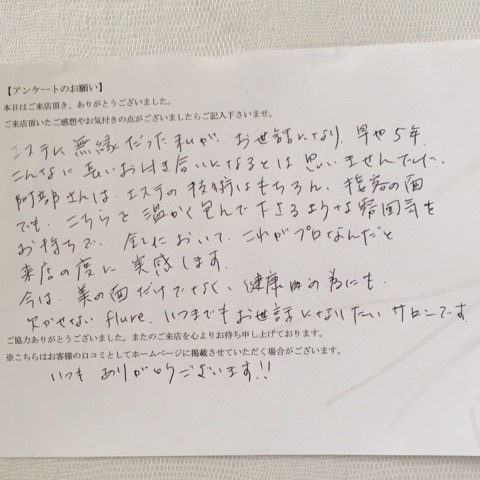 【アンケートのお願い】
本日はご来店頂き、ありがとうございました。
ご来店頂いたご感想やお気付きの点がございましたらご記入下さいませ。
エステに無縁だった私が、お世話になり、早や5年。
こんなに長いお付き合いになるとは思いませんでした。
阿部さんは、エステの技術はもちろん、接客の面
でも、こちらを温かく包んで下さるような雰囲気を
お持ちで、全てにおいて、これがプロなんだと
来店の度に実感します。
今は、美の面だけでなく、健康の為にも
欠かせない flure.いつまでもお世話になりたいサロンです
ご協力ありがとうございました。またのご来店を心よりお待ち申し上げております。
※こちらはお客様の口コミとしてホームページに掲載させていただく場合がございます。
いつもありがとうございます!!